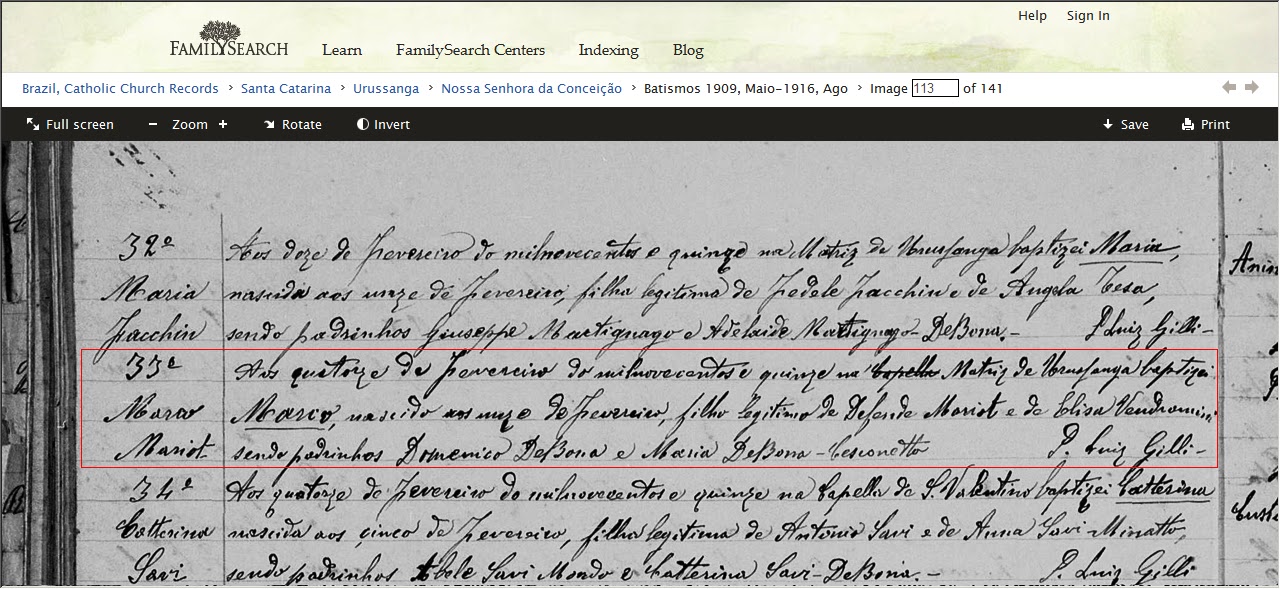 Help Sign In
FAMILYSEARCH Learn FamilySearch Centers Indexing Blog
Brazil, Catholic Church Records > Santa Catarina > Urussanga > Nossa Senhora da Conceição > Batismos 1909, Maio-1916, Ago > Image 113 of 141
Full screen − Zoom + Rotate Invert Save Print
32º Aos doze de Fevereiro do milnovecentos e quinze na Matriz de Urussanga baptizei Maria,
Maria nascida aos unze de Fevereiro, filha legitima de Fedele Facchin e de Angela Tesa,
Facchin sendo padrinhos Giuseppe Martignago e Adelaide Martignago-DeBona.- P. Luiz Gilli-
33º Aos quatorze de Fevereiro do milnovecentos e quinze na Capella Matriz de Urussanga baptizei
Marco Marco, nascido aos unze de Fevereiro, filho legitimo de Defende Mariot e de Elisa Vendramini
Mariot sendo padrinhos Domenico DeBona e Maria DeBona-Cesconetto P. Luiz Gilli-
34º Aos quatorze de Fevereiro do milnovecentos e quinze na Capella de S. Valentino baptizei Catterina
Catterina nascida aos cinco de Fevereiro, filha legitima de Antonio Savi e de Anna Savi-Minatto,
Savi sendo padrinhos Abele Savi Mondo e Catterina Savi-DeBona.- P. Luiz Gilli